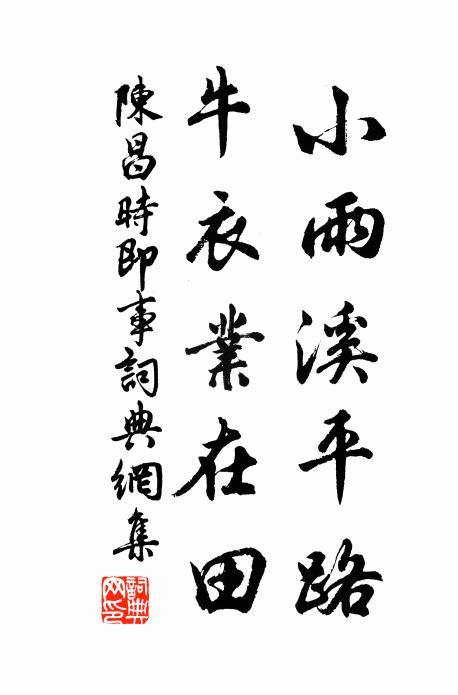 小雨溪平路
牛衣業在田
陳昌時即事詞典網集
詞典網印